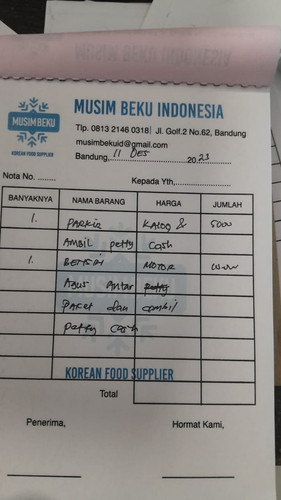 MUSIM BEKU
KOREAN FOOD SUPPLIER
MUSIM BEKU INDONESIA
Tlp. 0813 2146 0318| Jl. Golf.2 No.62, Bandung
musimbekuid@gmail.com
Bandung, 11 Des 2023
Nota No. ........
Kepada Yth,................
BANYAKNYA NAMA BARANG HARGA JUMLAH
1. PARKIR & 5000
AMBIL petty cash
1. MOTOR
Agus Antar petty
PAKET dan ambil
petty cash
MUSIM BEKU
KOREAN FOOD SUPPLIER
Total
Penerima, Hormat Kami,